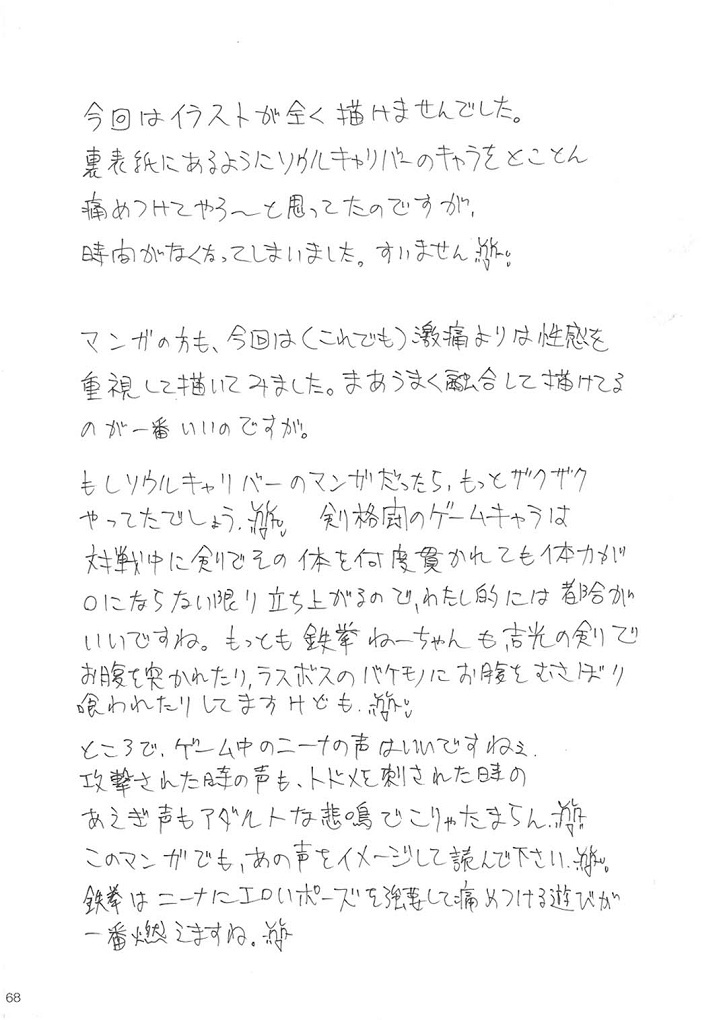 今回はイラストが全く描けませんでした。
裏表紙にあるようにソウルキャリバーのキャラをとことん
痛めつけてやろ〜と思ってたのですが、
時間がなくなってしまいました。すいません
マンガの方も、今回は(これでも)激痛よりは性感を
重視して描いてみました。まあうまく融合して描けてる
のが一番いいのですが。
もしソウルキャリバーのマンガだったら、もっとザクザク
やってたでしょう。 剣格闘のゲームキャラは
対戦中に剣でその体を何度貫かれても体力が
0にならない限り立ち上がるので、わたし的には都合が
いいですね。もっとも鉄拳ねーちゃんも、吉光の剣で
お腹を突かれたり、ラスボスのバケモノにお腹をむさぼり
喰われたりしてますけども。
ところで、ゲーム中のニーナの声はいいですねぇ。
攻撃された時の声も、トドメを刺された時の
あえぎ声もアダルトな悲鳴でこりゃたまらん。
このマンガでも、あの声をイメージして読んで下さい。
鉄拳はニーナにエロいポーズを強要して痛めつける遊びが
一番燃えますね。
68